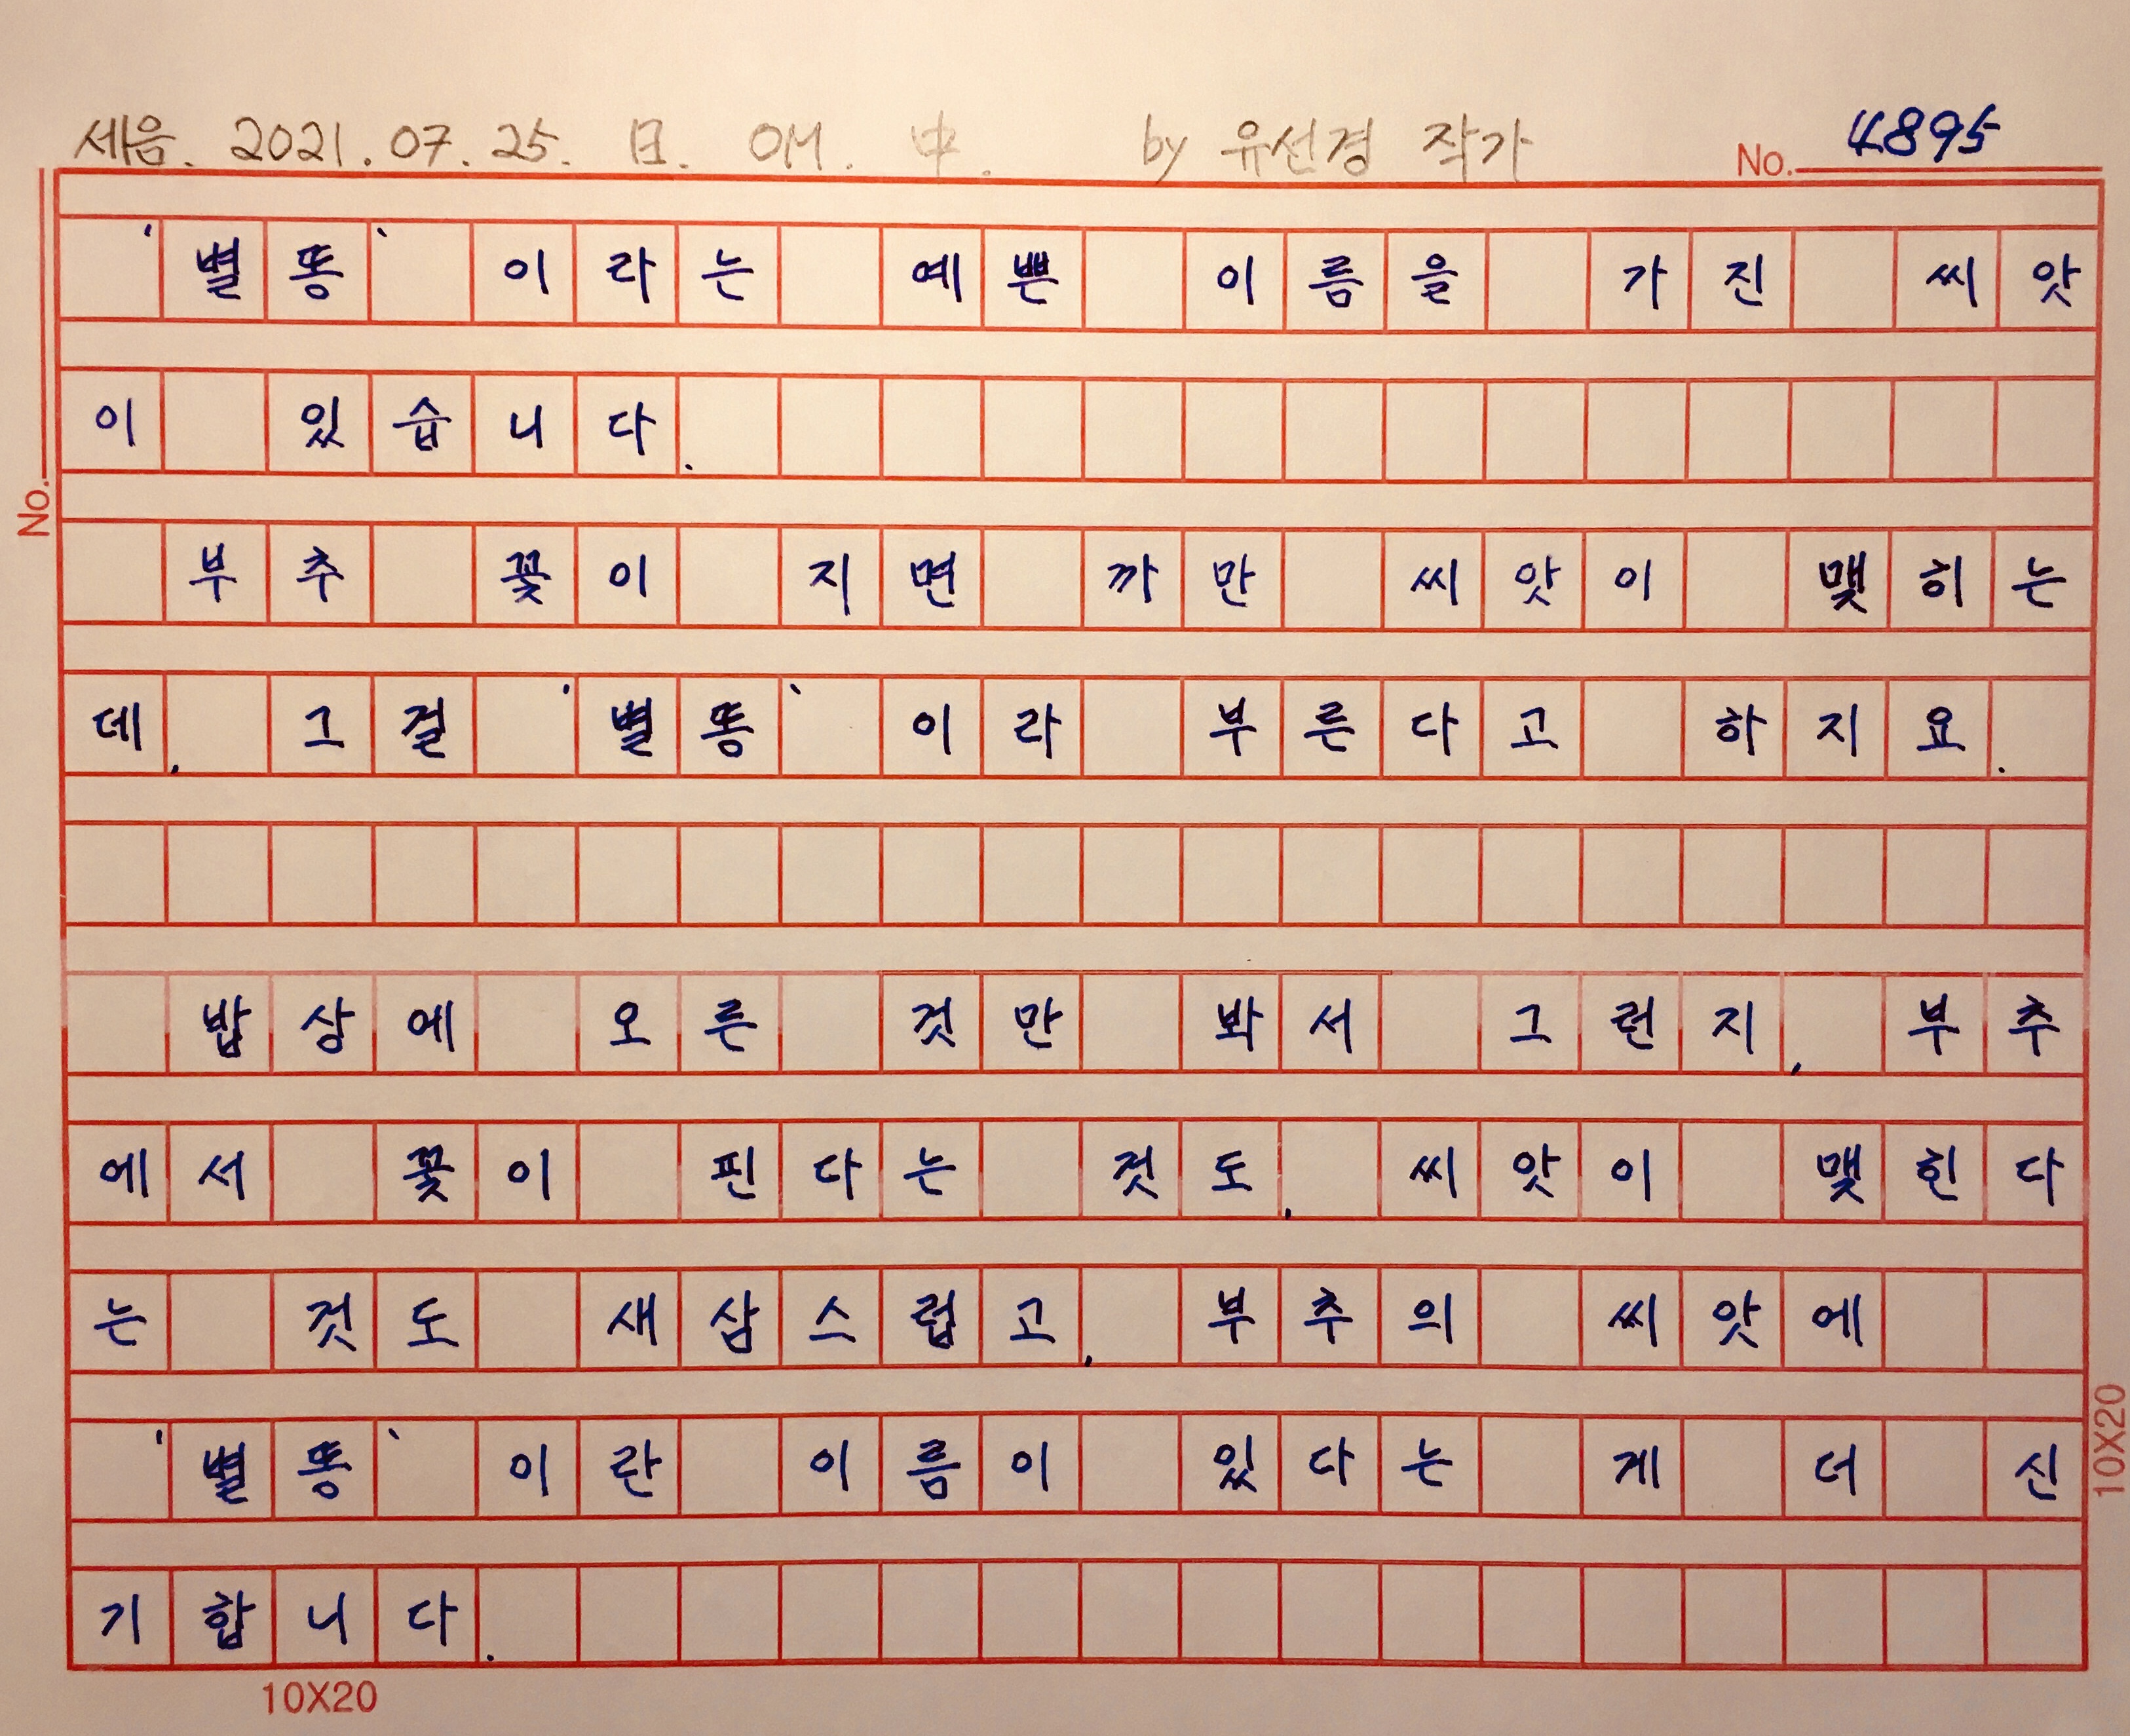 세음. 2021.07.25. 日. OM. 中. by 유선경 작가 No. 4895
'별똥'이라는 예쁜 이름을 가진 씨앗
이 있습니다.
No.
부추 꽃이 지면 까만 씨앗이 맺히는
데, 그걸 '별똥'이라 부른다고 하지요.
밥상에 오른 것만 봐서 그런지, 부추
에서 꽃이 핀다는 것도, 씨앗이 맺힌다
는 것도 새삼스럽고, 부추의 씨앗에
'별똥'이란 이름이 있다는 게 더 신
기합니다.
10X20
10X20